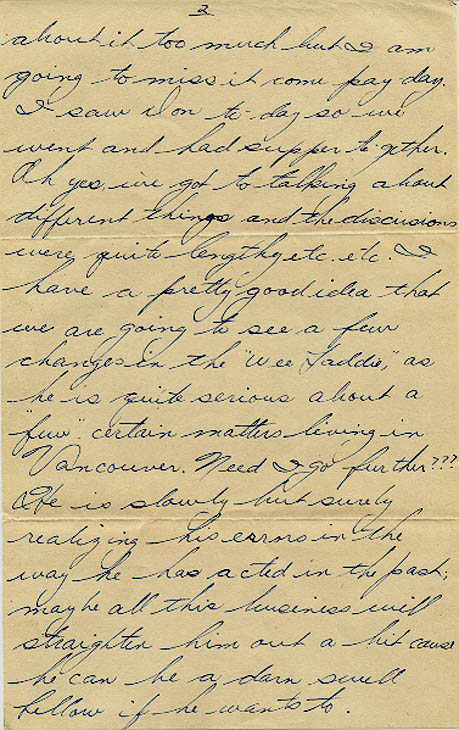 2
about it too much but I am
going to miss it come pay day.
I saw Don to-day so we
went and had supper to-gether.
Oh yes, we got to talking about
different things and the discusions
were quite lengthy etc. etc. I
have a pretty good idea that
we are going to see a few
changes in the "Wee Laddie", as
he is quite serious about a
"few" certain matters living in
Vancouver. Need I go further???
He is slowly but surely
realizing his errors in the
way he has acted in the past;
maybe all this business will
straighten him out a bit cause
he can be a darn swell
fellow if he wants to.